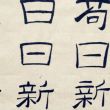 日新
日日新